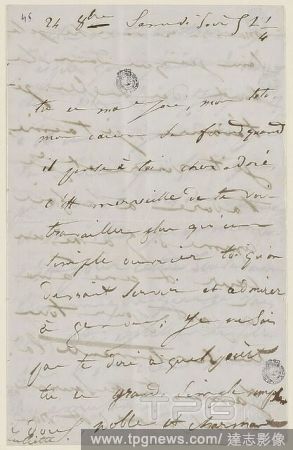 46
24 8bre Samedi soir 5h ¼
tu es ma joie, mon toto
mon cœur se fond quand
il pense à toi cher adoré
c'est merveille de te voir
travailler plus qu'un
simple ouvrier toi qu'on
devrait servir et admirer
à genoux, je ne sais
pas t dire à quel point
tu es grand simple
noble et charmant
à vous
Juliette
TPG
www.tpgnews.com / 達志影像